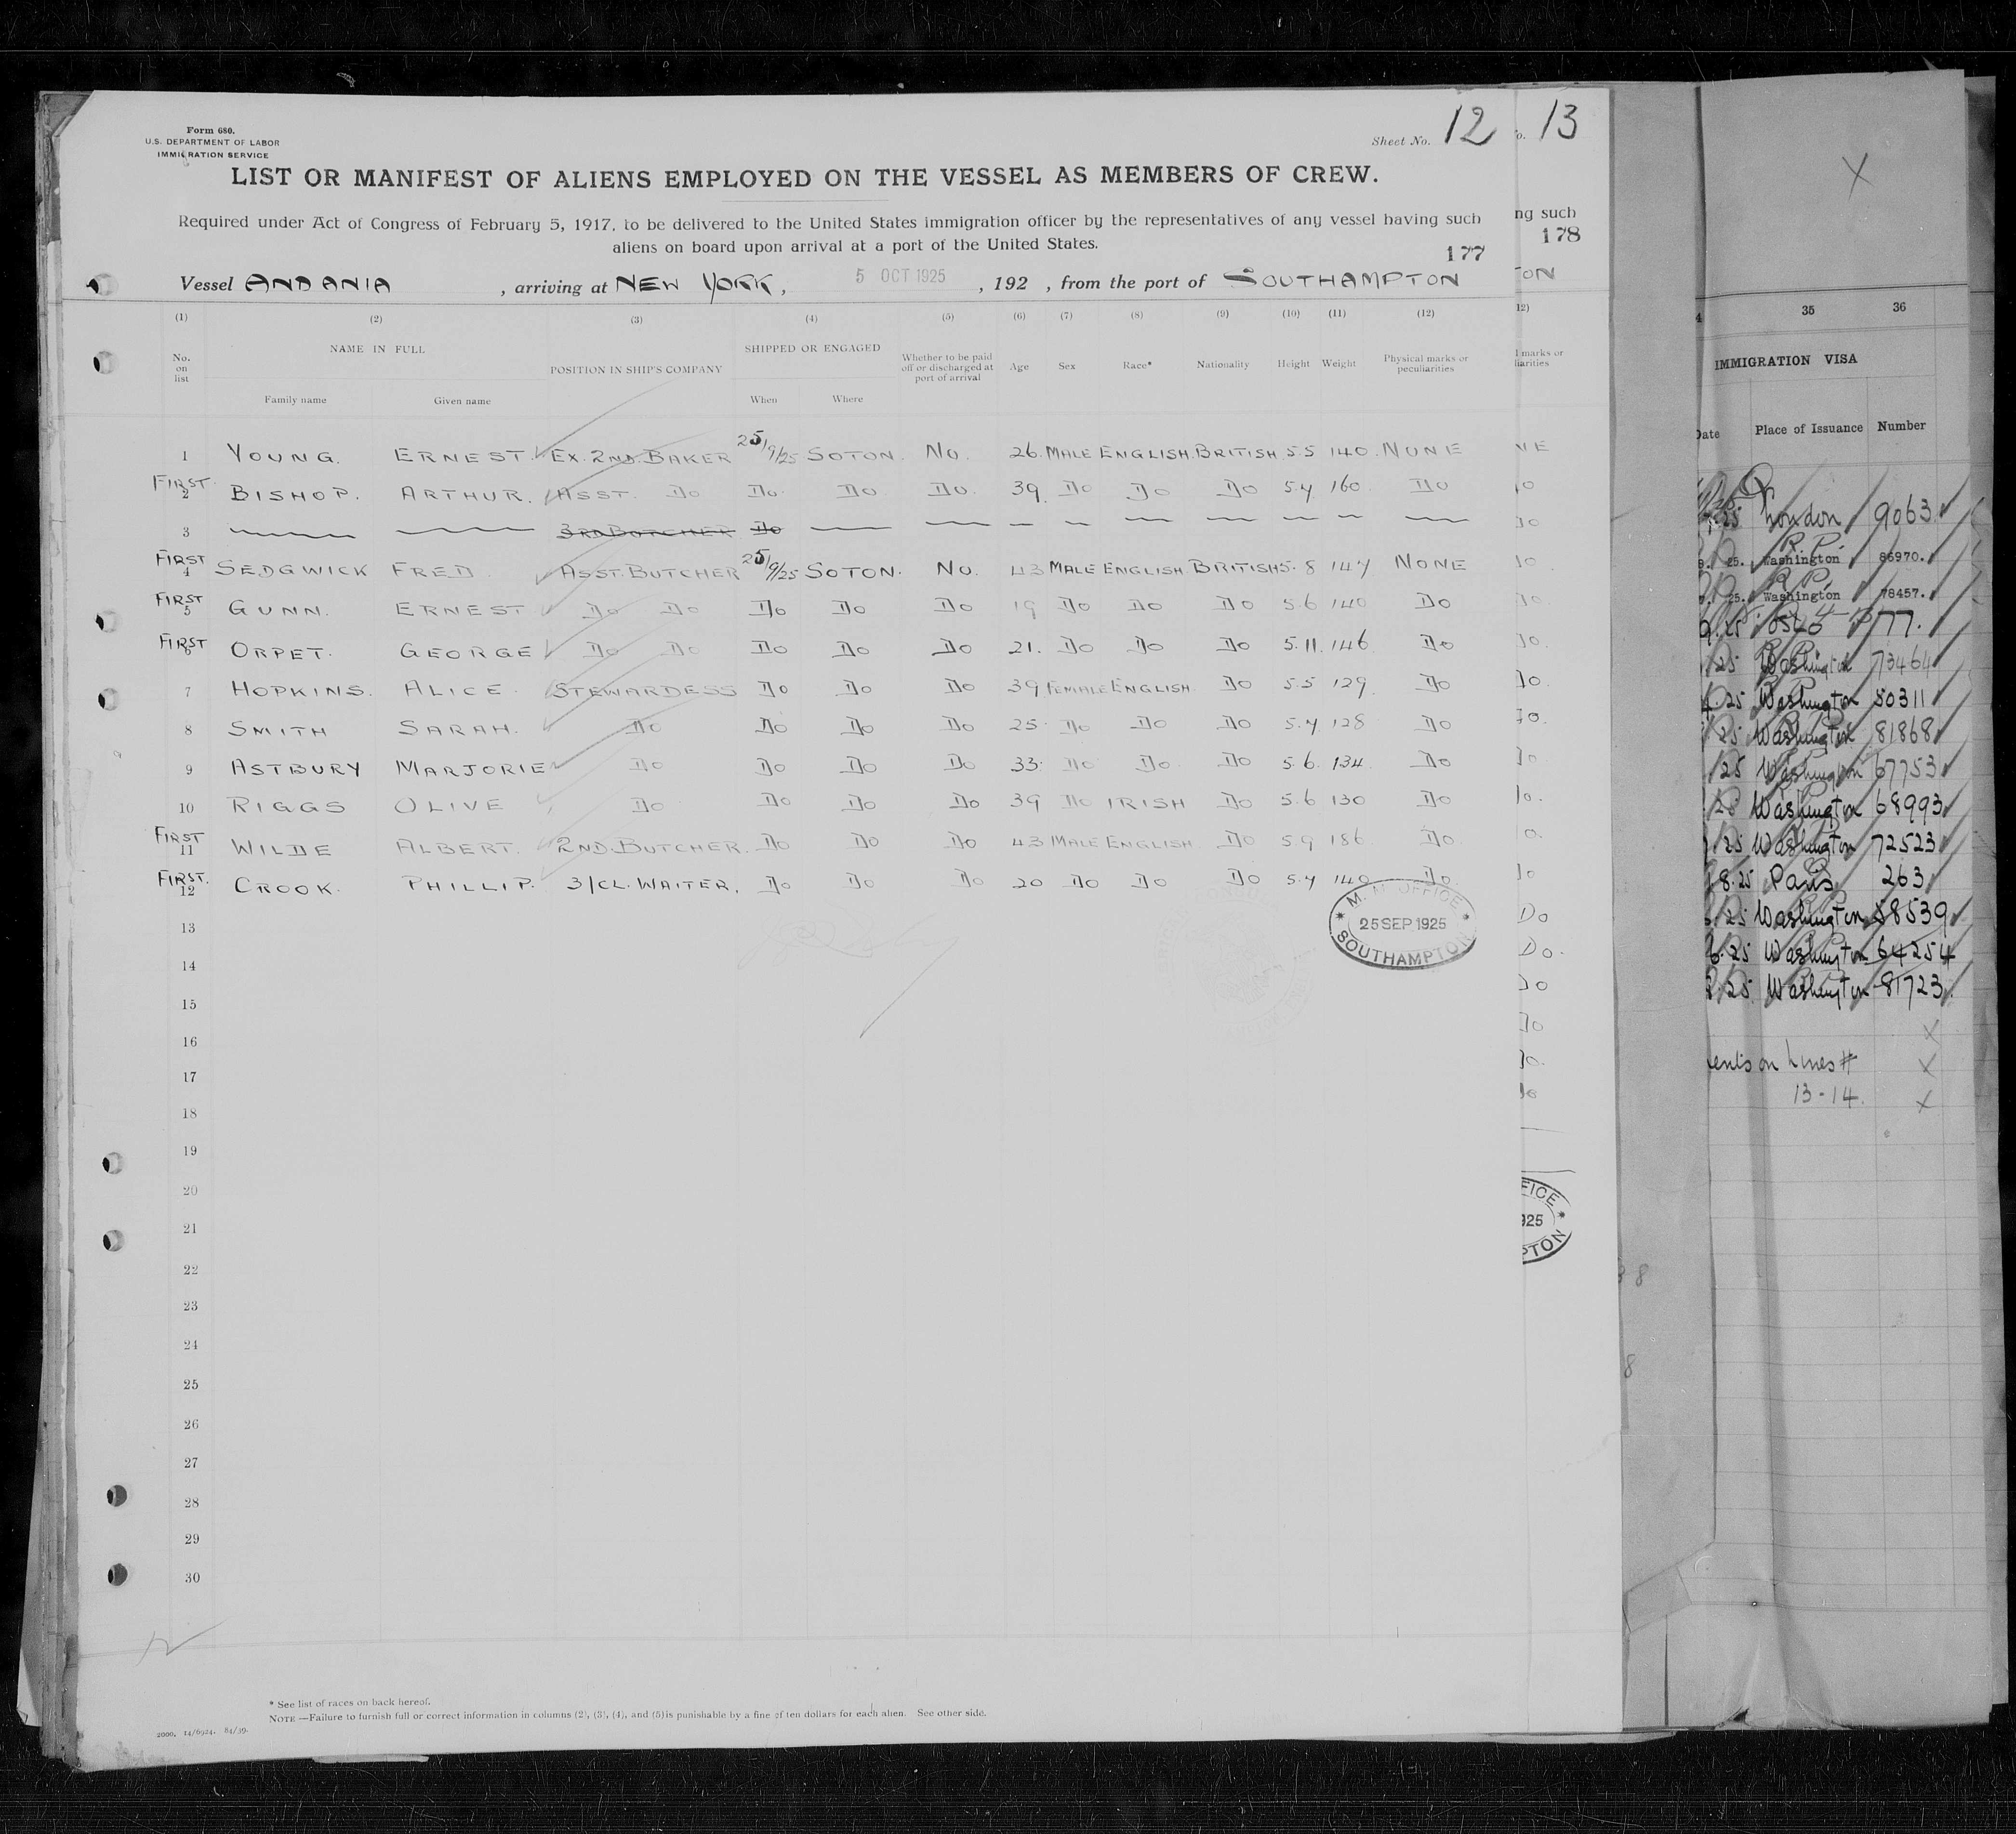 Form 680.
U.S. DEPARTMENT OF LABOR
IMMIGRATION SERVICE
Sheet No. 12
o. 13
LIST OR MANIFEST OF ALIENS EMPLOYED ON THE VESSEL AS MEMBERS OF CREW.
Required under Act of Congress of February 5, 1917, to be delivered to the United States immigration officer by the representatives of any vessel having such
aliens on board upon arrival at a port of the United States.
177
ng such
178
Vessel ANDANIA , arriving at NEW YORK, 5 OCT 1925 , 192 , from the port of SOUTHAMPTON
TON
(1) (2) (3) (4) (5) (6) (7) (8) (9) (10) (11) (12)
No. on list NAME IN FULL POSITION IN SHIP'S COMPANY SHIPPED OR ENGAGED Whether to be paid off or discharged at port of arrival Age Sex Race* Nationality Height Weight Physical marks or peculiarities
Family name Given name When Where
1 YOUNG. ERNEST. EX. 2ND. BAKER 25/9/25 SOTON. NO. 26. MALE ENGLISH. BRITISH 5.5 140. NONE
FIRST 2 BISHOP. ARTHUR. ASST. DO DO. DO DO. 39. DO DO DO 5.4 160. DO
3 3RD BUTCHER DO
FIRST 4 SEDGWICK FRED. ASST. BUTCHER 25/9/25 SOTON. NO. 43 MALE ENGLISH BRITISH 5.8 147 NONE
FIRST 5 GUNN. ERNEST DO DO DO DO DO 19 DO DO DO 5.6 140 DO
FIRST 6 ORPET. GEORGE DO DO DO DO DO 21. DO DO DO 5.11. 146. DO
7 HOPKINS. ALICE. STEWARDESS DO DO DO 39 FEMALE ENGLISH. DO 5.5 129. DO
8 SMITH SARAH. DO DO DO DO 25. DO DO DO 5.4. 128 DO
9 ASTBURY MARJORIE DO DO DO DO 33. DO DO. DO 5.6. 134. DO
10 RIGGS OLIVE DO DO DO DO 39 DO IRISH DO 5.6 130 DO
FIRST 11 WILDE ALBERT. 2ND. BUTCHER. DO DO DO 43 MALE ENGLISH DO 5.9 186. DO.
FIRST. 12 CROOK. PHILLIP. 3/CL. WAITER. DO DO DO 20 DO DO DO 5.4 140. DO.
13
14
15
16
17
18
19
20
21
22
23
24
25
26
27
28
29
30
M.M. OFFICE
25 SEP 1925
SOUTHAMPTON
* See list of races on back hereof.
NOTE—Failure to furnish full or correct information in columns (2), (3), (4), and (5) is punishable by a fine of ten dollars for each alien. See other side.
2000. 14/6924. 84/39.
12)
marks or
liarities
Do
Do.
FICE
925
PTON
35 36
IMMIGRATION VISA
Date Place of Issuance Number
25 London 9063
25. Washington 86970.
25. Washington 78457.
9.25 Oslo 77.
25 Washington 73464
25 Washington 50311
25 Washington 81868
25 Washington 67753
25 Washington 68993
25 Washington 72523
8.25 Paris 263
25 Washington 58539
6.25 Washington 64254
25 Washington 81723.
on Lines #
13-14.